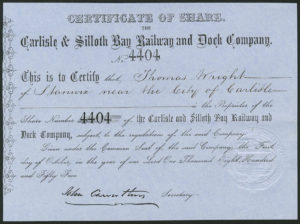 CERTIFICATE OF SHARE.
THE
Carlisle & Silloth Bay Railway and Dock Company.
No. 4404
This is to Certify that Thomas Wright
of Stanwix near the City of Carlisle
is the Proprietor of the
Share Number 4404 of the Carlisle and Silloth Bay Railway and
Dock Company, subject to the regulations of the said Company.
Given under the Common Seal of the said Company, the First
day of October, in the year of our Lord One Thousand Eight Hundred
and Fifty Five
Secretary